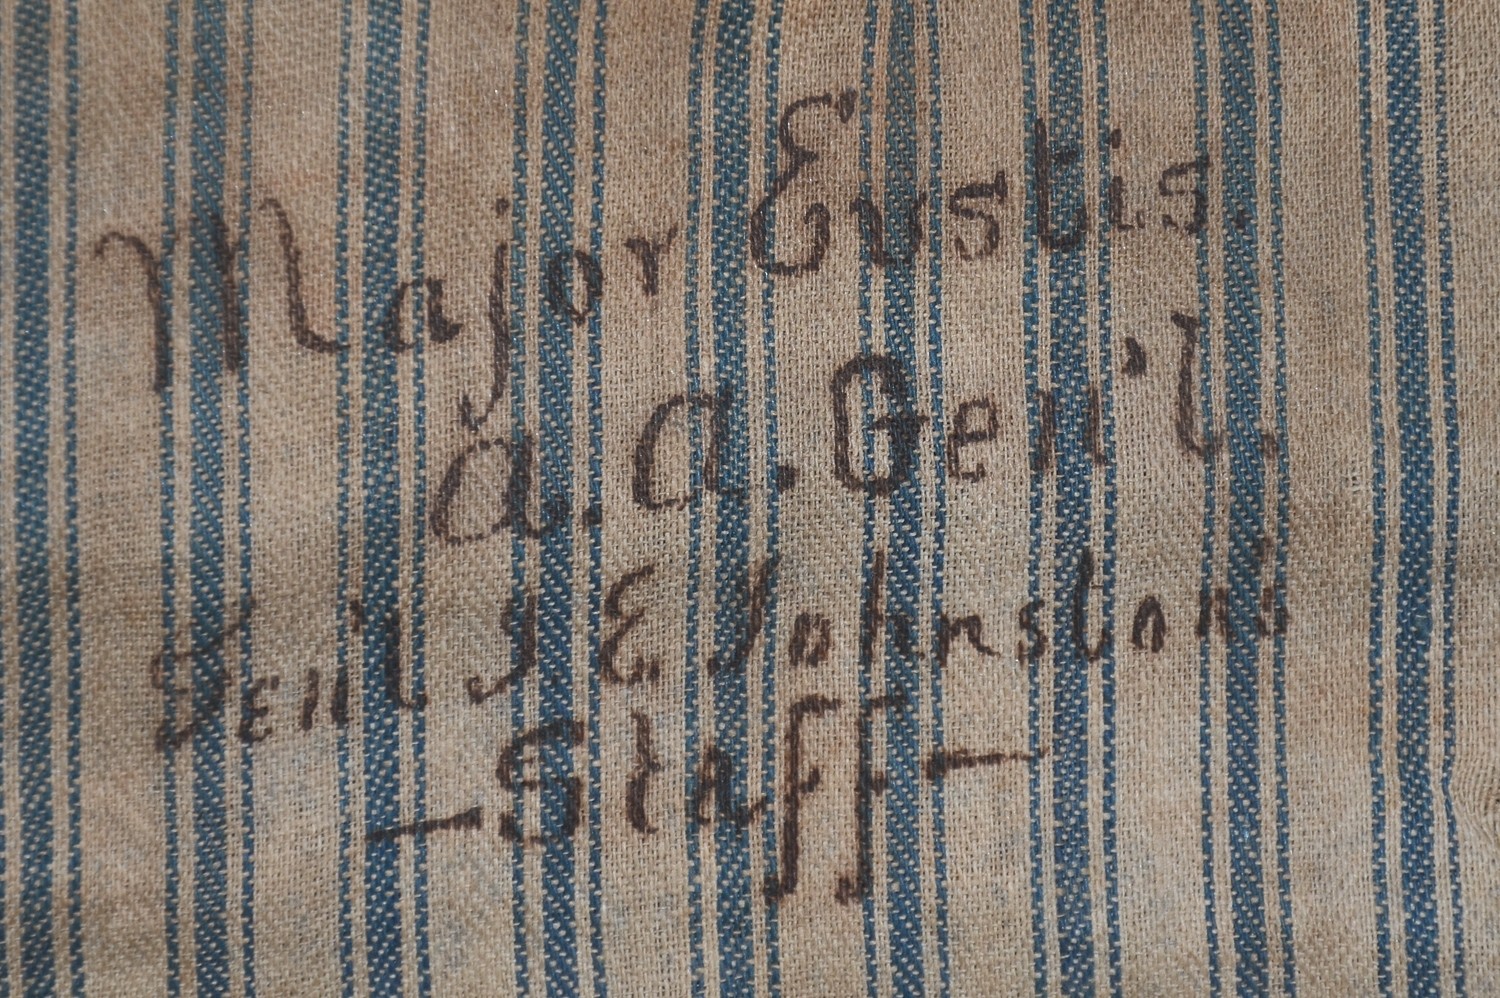 Major Eustis.
A. A. Gen'l.
Gen'l J. E Johnston's
— Staff —